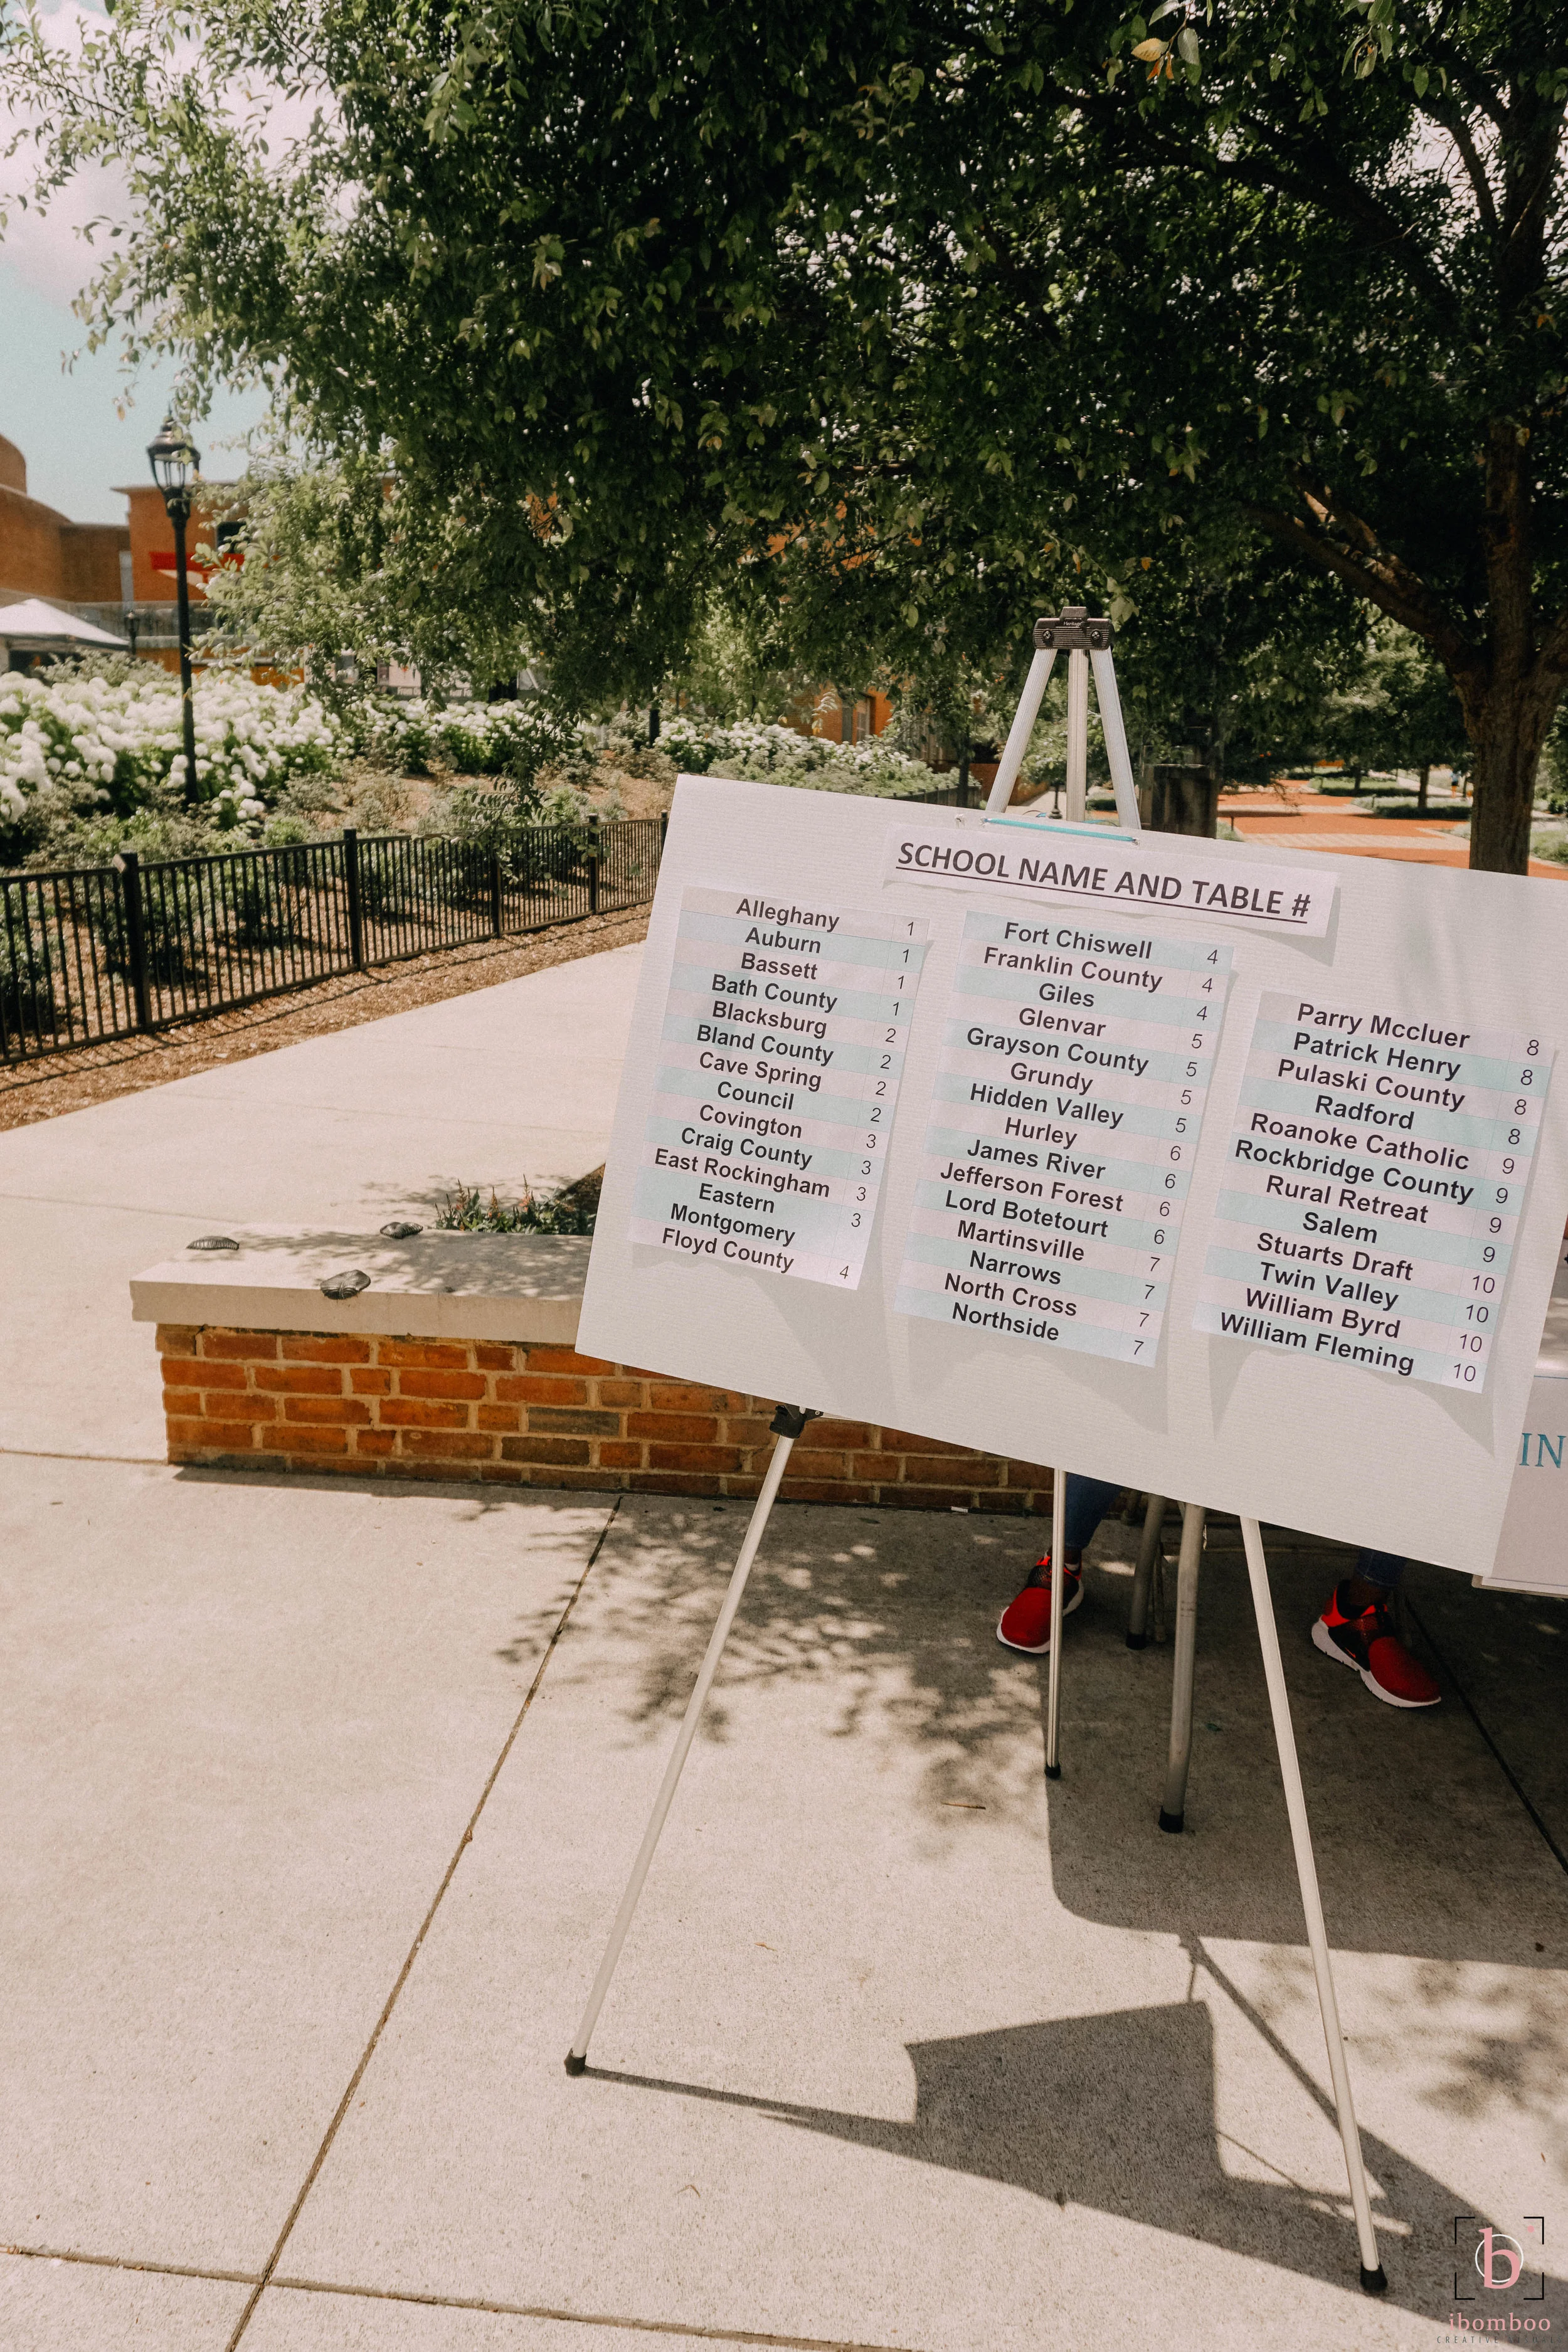 SCHOOL NAME AND TABLE #
Alleghany 1
Auburn 1
Bassett 1
Bath County 1
Blacksburg 2
Bland County 2
Cave Spring 2
Council 2
Covington 3
Craig County 3
East Rockingham 3
Eastern
Montgomery 3
Floyd County 4
Fort Chiswell 4
Franklin County 4
Giles 4
Glenvar 5
Grayson County 5
Grundy 5
Hidden Valley 5
Hurley 6
James River 6
Jefferson Forest 6
Lord Botetourt 6
Martinsville 7
Narrows 7
North Cross 7
Northside 7
Parry Mccluer 8
Patrick Henry 8
Pulaski County 8
Radford 8
Roanoke Catholic 9
Rockbridge County 9
Rural Retreat 9
Salem 9
Stuarts Draft 10
Twin Valley 10
William Byrd 10
William Fleming 10
IN
b
ibomboo
CREATIVE